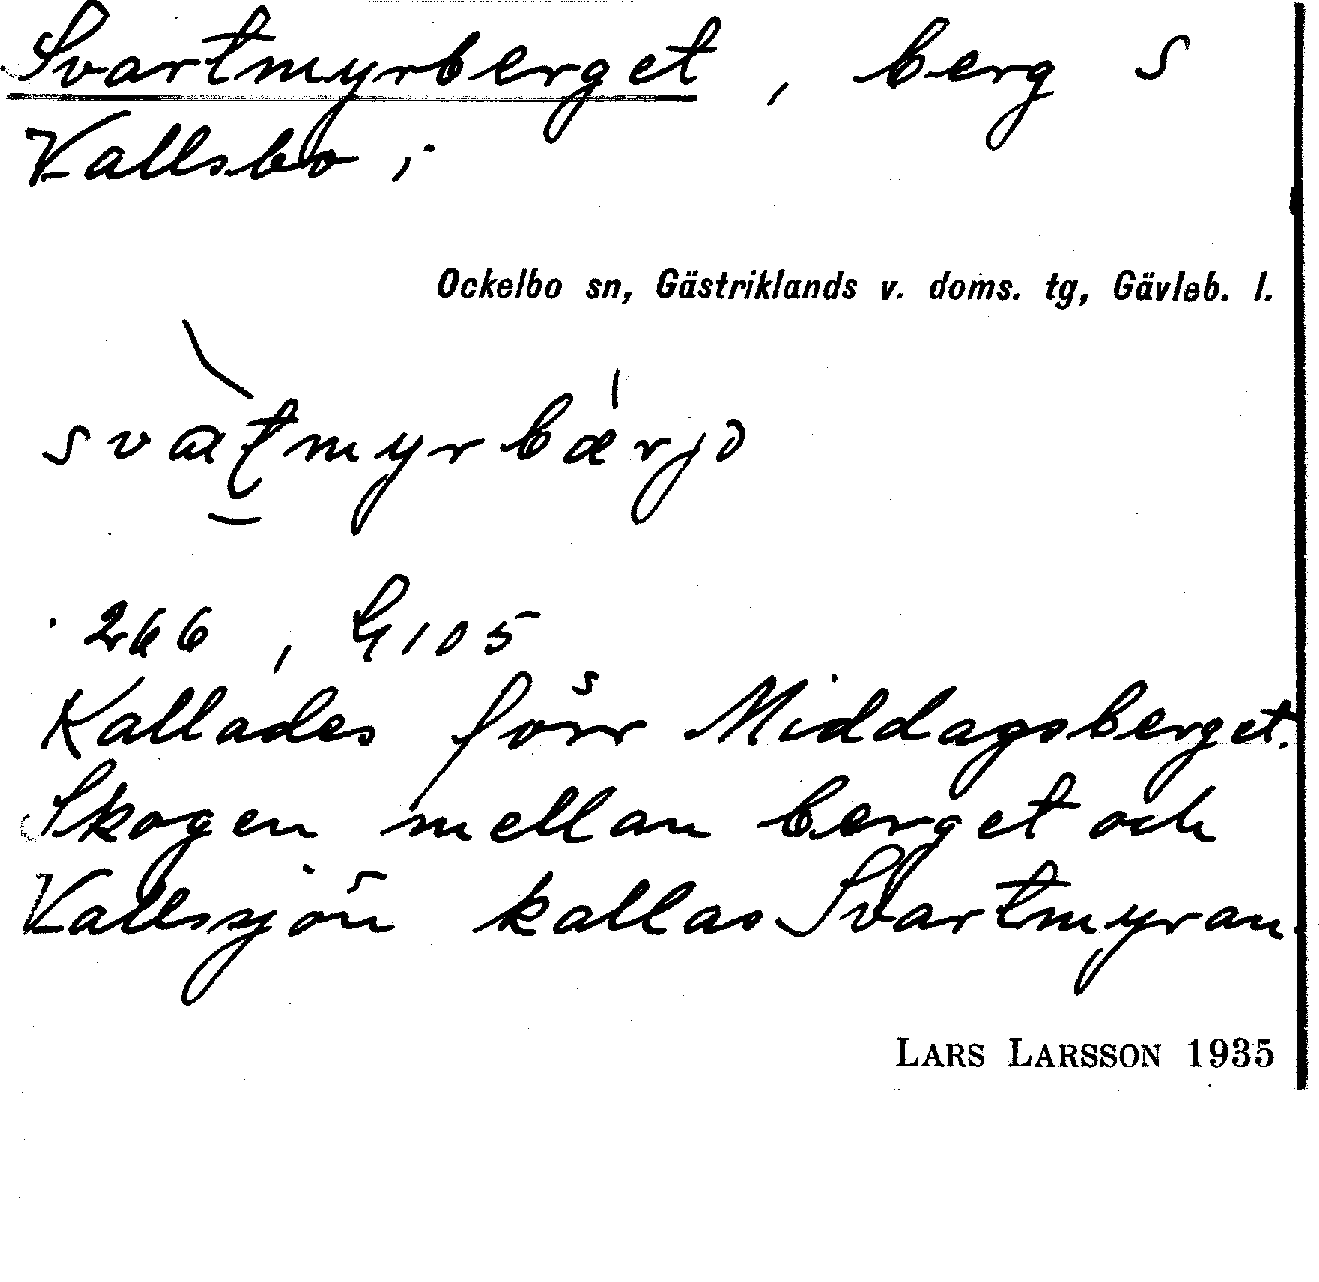 Svartmyrberget, berg S
Vallsbo ;
Ockelbo sn, Gästriklands v. doms. tg, Gävleb. l.
svàtmyrbǽrjə
266, G105
Kallades förr Middagsberget.
Skogen mellan berget och
Vallsjön kallas Svartmyran.
LARS LARSSON 1935